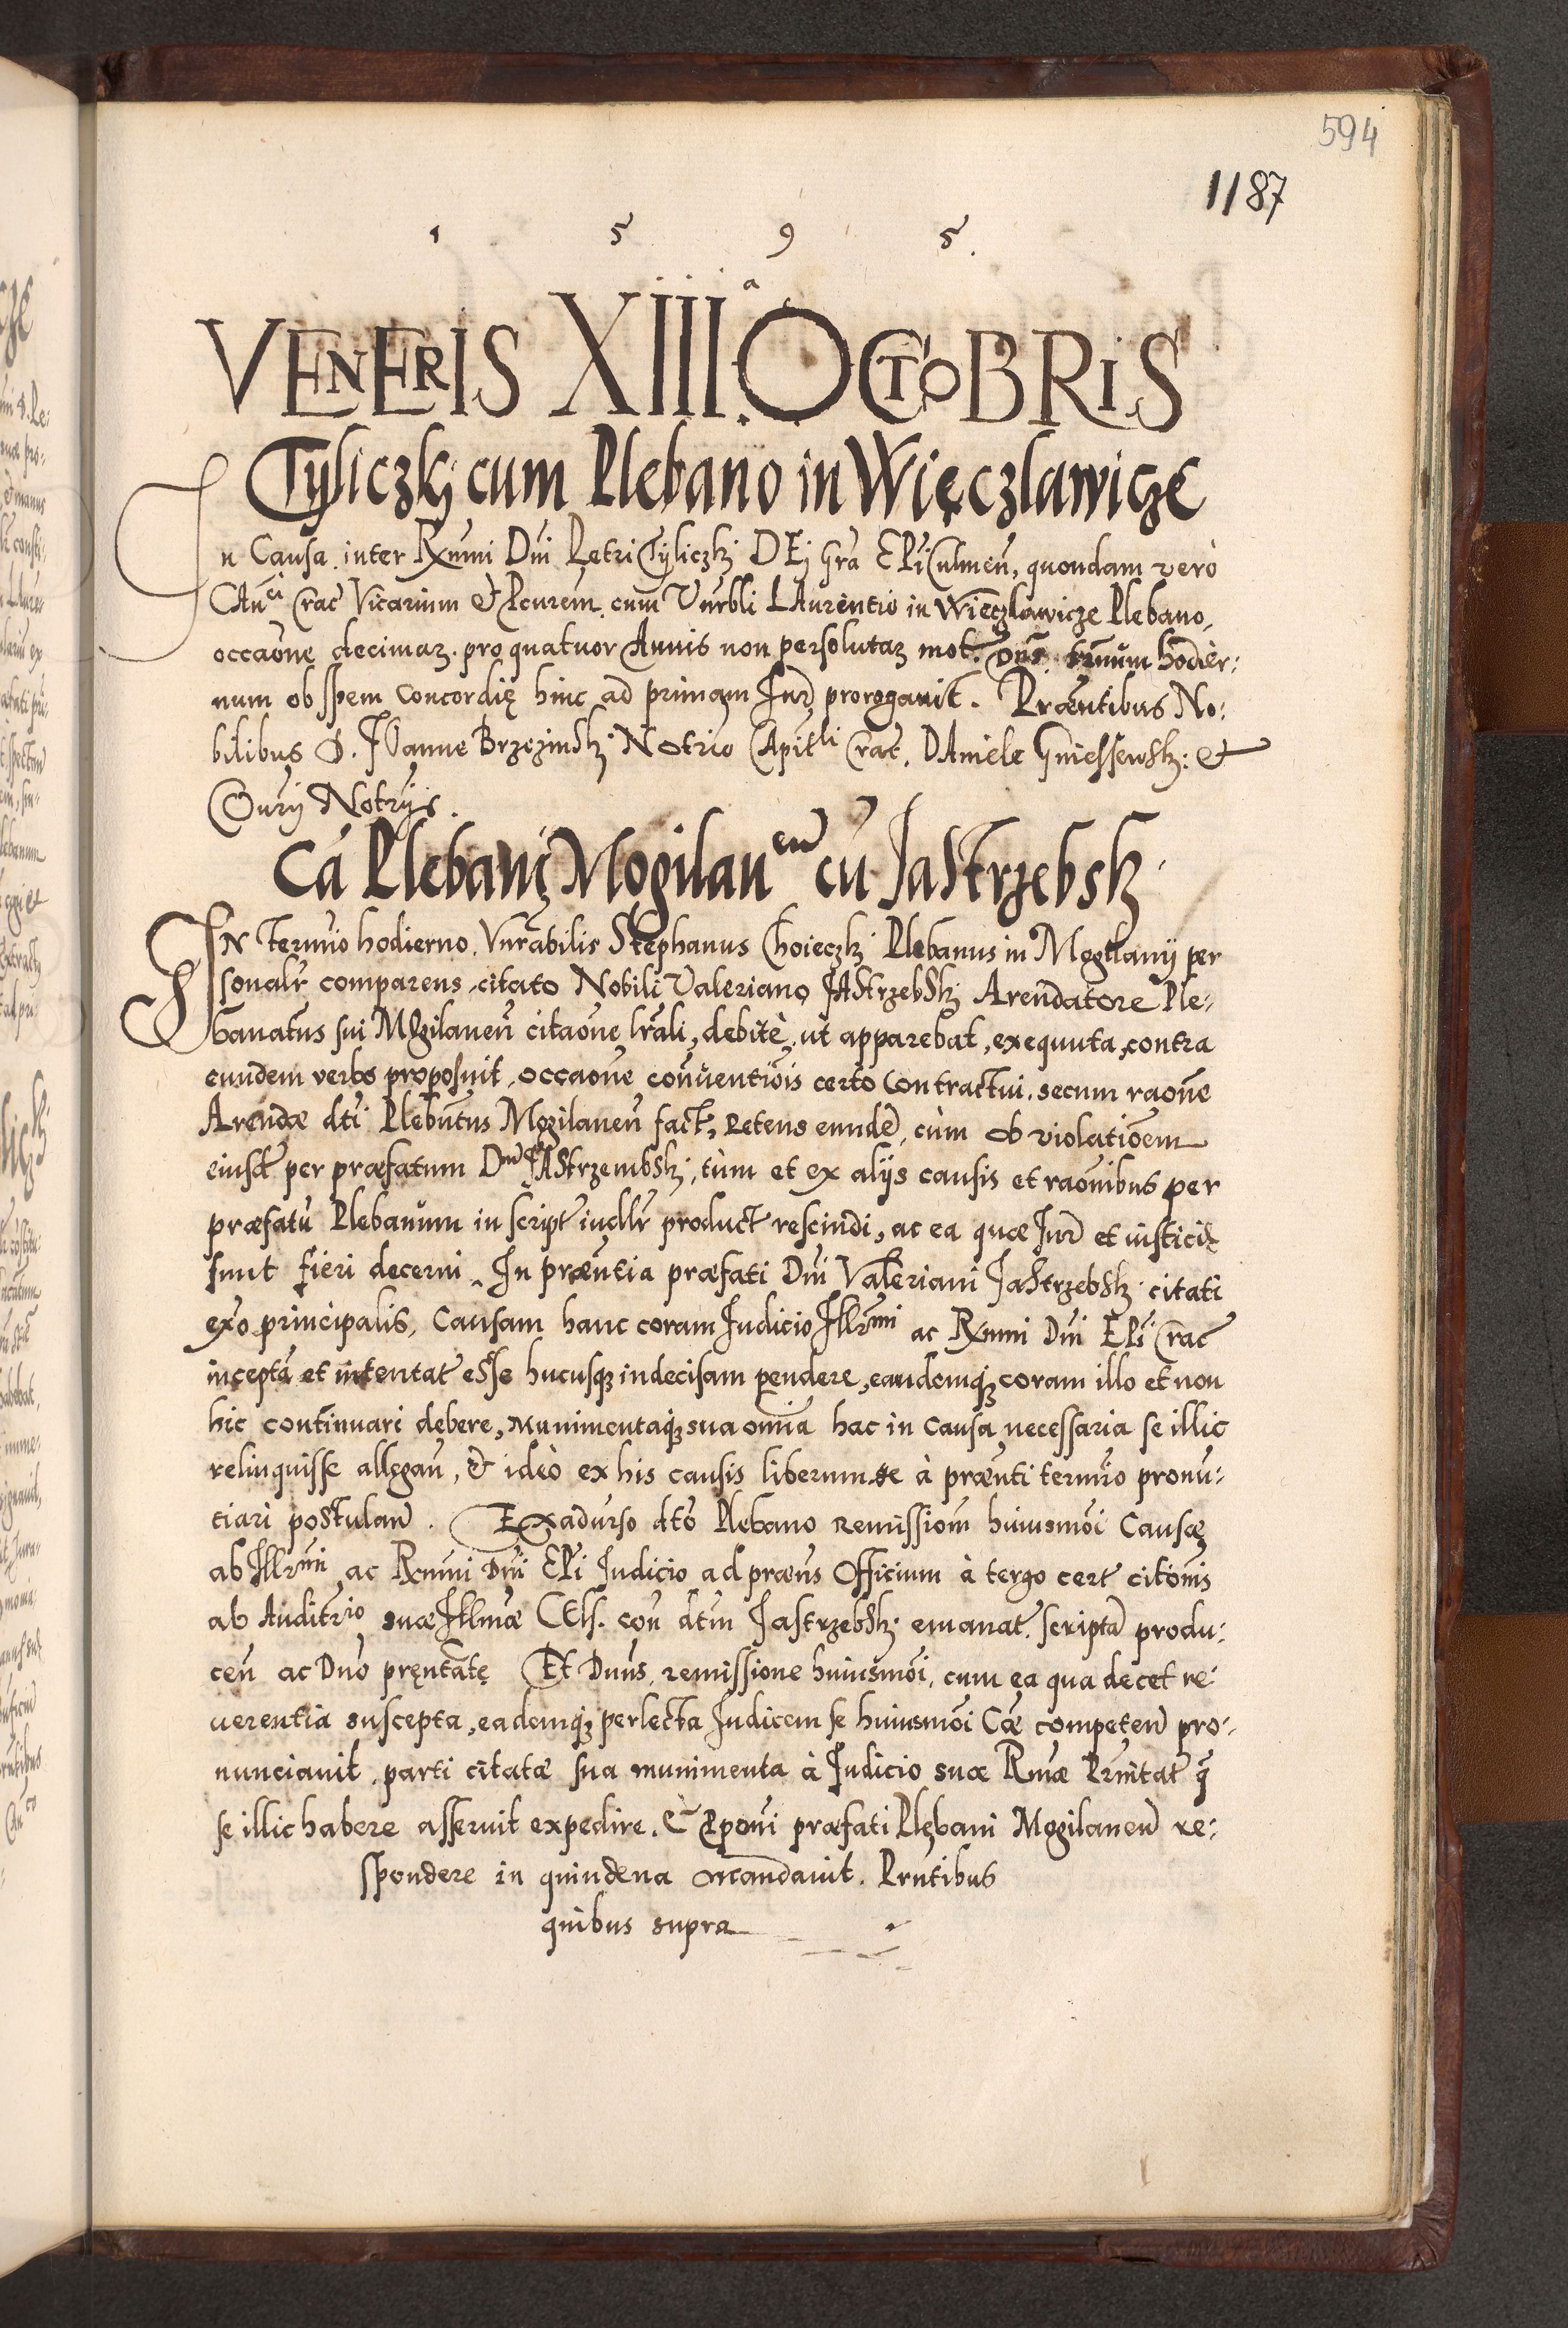 594
1187
1 5 9 5.
VENERIS XIII.ª OCTOBRIS
Tyliczkj cum Plebano in Więczlawicze
In Causa inter Rxnmi Dni Petri Tyliczkj DEj gra EPi Culmen̄, quondam verò
CAnci Crac Vicarium & Pcurem cum Vnrbli LAurentio in Więczlawicze Plebano,
occaone decimaꝝ pro quatuor Annis non persolutaꝝ mot. Dns trnum hodier:
num ob spem Concordię hinc ad primam Iur prorogauit. Præntibus No:
bilibus D. IOanne Brzezinskj Notrio CApitli Crac, DAniele Gniessewsk: &
Coury Notrijs.
Cā Plebani Mogilanen cū Jastrzebsk
IN Termio hodierno Vnrabilis Stephanus Choieczkj Plebanus in Mogilanij per
sonalr comparens, citato Nobili Valeriano JAstrzebskj Arendatore Ple:
banatus sui MOgilanen̄ citaone lrali, debitè, ut apparebat, exequuta, contra
eundem verbo proposuit, occaone conuentiois certo Contractui secum raone
Arendæ dti Plebntus Mogilanen̄ fact, Petens eundē, cùm ob violatioēm
eiusd per præfatum Dnū JAstrzembskj, tùm et ex alijs causis et raonibus per
præfatū Plebanum in script iudlr product rescindi, ac ea quæ Iur et iusticię
sunt fieri decerni. In præntia præfati Dni Valeriani Jastrzebskj citati
exo principalis, Causam hanc coram Iudicio Illrmi ac Rxnmi Dni EPi Crac
inceptā et intentat esse hucusqꝫ indecisam pendere, eandemqꝫ coram illo et non
hic continuari debere, Munimentaqꝫ sua omīa hac in Causa necessaria se illic
relinquisse allegan̄, & ideò ex his causis liberum se à prænti termīo pronū:
tiari postulan̄. Exadurso dto Plebano Remissiom huiusmōi Causæ
ab Illrmi ac Rxnmi Dni EPi Iudicio ad præns Officium à tergo cert citōnis
ab Auditrio suæ Illmæ CEls. con dtm Jastrzebskj emanat. scriptā produ:
cen̄ ac Dno pręntatę Et Dnus, remissione huiusmōi, cum ea qua decet re:
uerentia suscepta, eademqꝫ perlecta Iudicem se huiusmōi Cæ competen̄ pro:
nunciauit, parti citatæ sua munimenta à Iudicio suæ Rmæ Prnitat q̄
se illic habere asseruit expedire. & Pponi præfati Plebani Mogilanen̄ re:
spondere in quindena mandauit. Prntibus
quibus supra